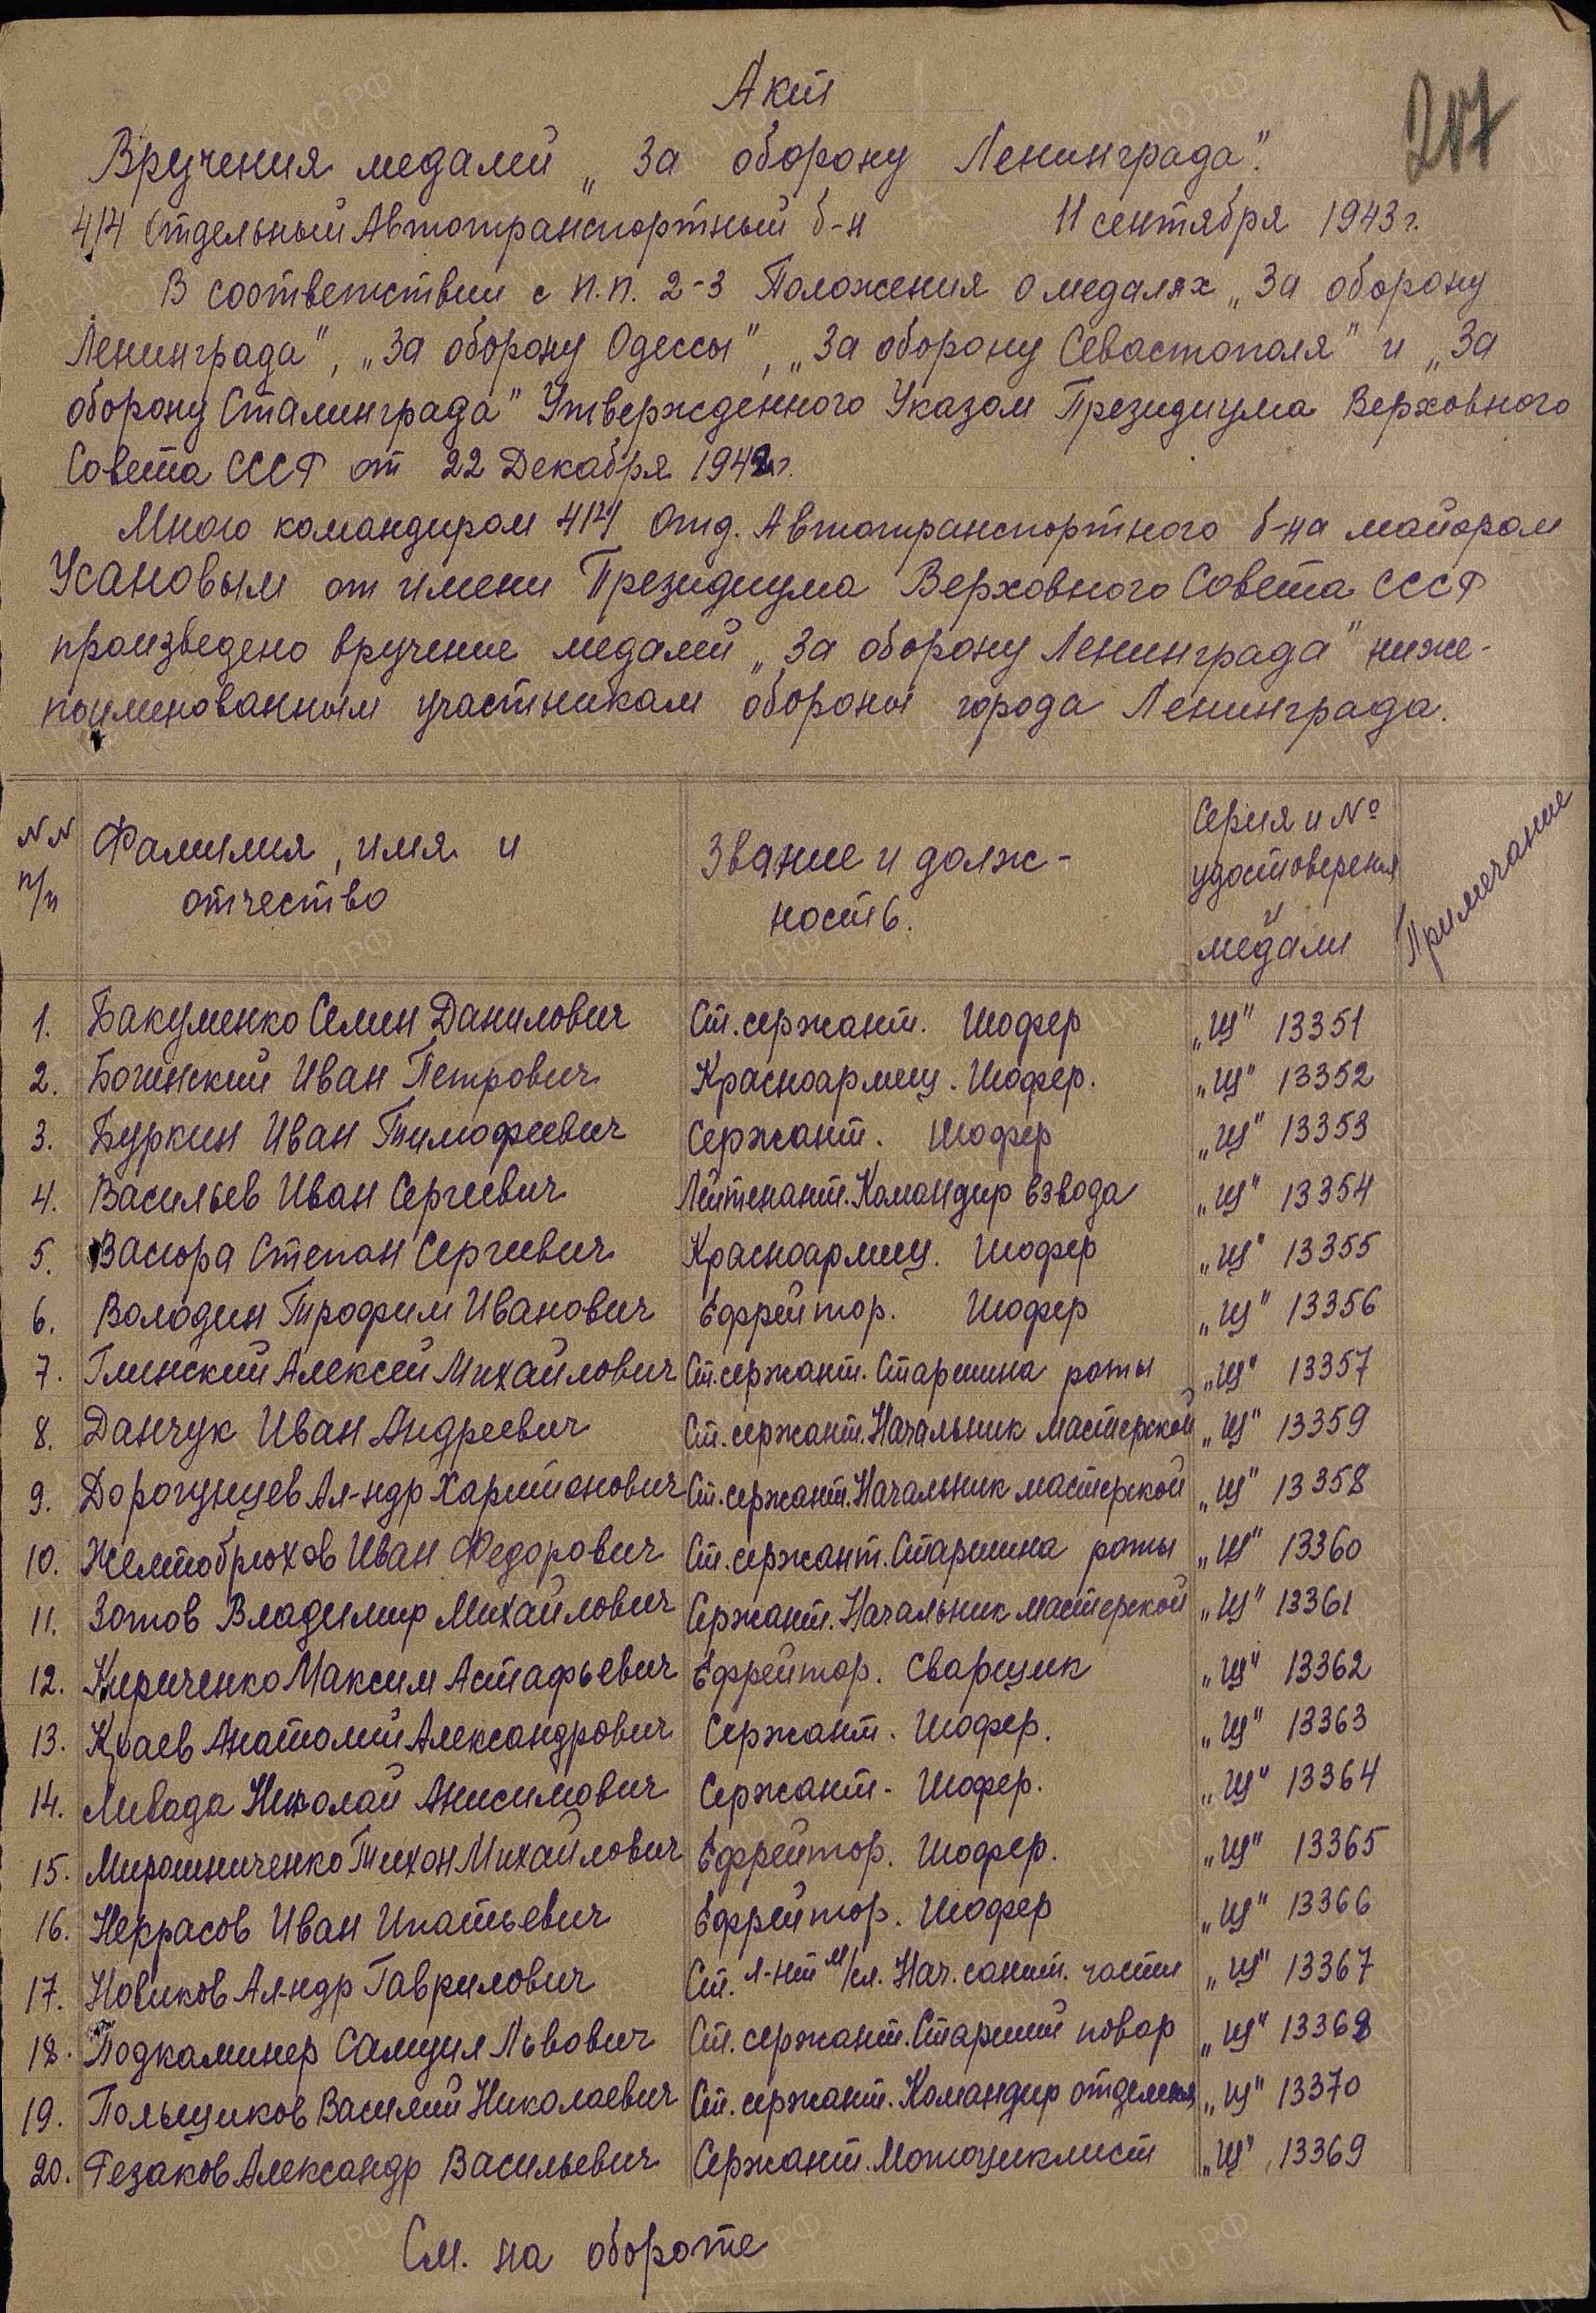 Акт
207
Вручения медалей „За оборону Ленинграда".
414 Отдельный Автотранспортный б-н 11 сентября 1943 г.
В соответствии с п.п. 2-3 Положения о медалях „За оборону
Ленинграда", „За оборону Одессы", „За оборону Севастополя" и „За
оборону Сталинграда" Утвержденного Указом Президиума Верховного
Совета СССР от 22 Декабря 1942 г.
Мною командиром 414 Отд. Автотранспортного б-на майором
Усановым от имени Президиума Верховного Совета СССР
произведено вручение медалей „За оборону Ленинграда" ниже-
поименованным участникам обороны города Ленинграда.
NN п/п Фамилия, имя и отчество Звание и долж-ность. Серия и № удостоверения и медали Примечание
1. Бакуменко Семен Данилович Ст. сержант. Шофер „Щ" 13351
2. Богинский Иван Петрович Красноармеец. Шофер. „Щ" 13352
3. Буркин Иван Тимофеевич Сержант. Шофер „Щ" 13353
4. Васильев Иван Сергеевич Лейтенант. Командир взвода „Щ" 13354
5. Васюра Степан Сергеевич Красноармеец. Шофер „Щ" 13355
6. Володин Трофим Иванович Ефрейтор. Шофер „Щ" 13356
7. Глинский Алексей Михайлович Ст. сержант. Старшина роты „Щ" 13357
8. Данчук Иван Андреевич Ст. сержант. Начальник мастерской „Щ" 13359
9. Дорогунцев Ал-ндр Харитонович Ст. сержант. Начальник мастерской „Щ" 13358
10. Желтобрюхов Иван Федорович Ст. сержант. Старшина роты „Щ" 13360
11. Зотов Владимир Михайлович Сержант. Начальник мастерской „Щ" 13361
12. Кириченко Максим Астафьевич Ефрейтор. Сварщик „Щ" 13362
13. Краев Анатолий Александрович Сержант. Шофер. „Щ" 13363
14. Ливада Николай Анисимович Сержант - Шофер. „Щ" 13364
15. Мирошниченко Тихон Михайлович Ефрейтор. Шофер. „Щ" 13365
16. Некрасов Иван Игнатьевич Ефрейтор. Шофер „Щ" 13366
17. Новиков Ал-ндр Гаврилович Ст. л-нт м/сл. Нач. санит. части „Щ" 13367
18. Подкаминер Самуил Львович Ст. сержант. Старший повар „Щ" 13368
19. Польщиков Василий Николаевич Ст. сержант. Командир отделения „Щ" 13370
20. Резаков Александр Васильевич Сержант. Мотоциклист „Щ" 13369
См. на обороте